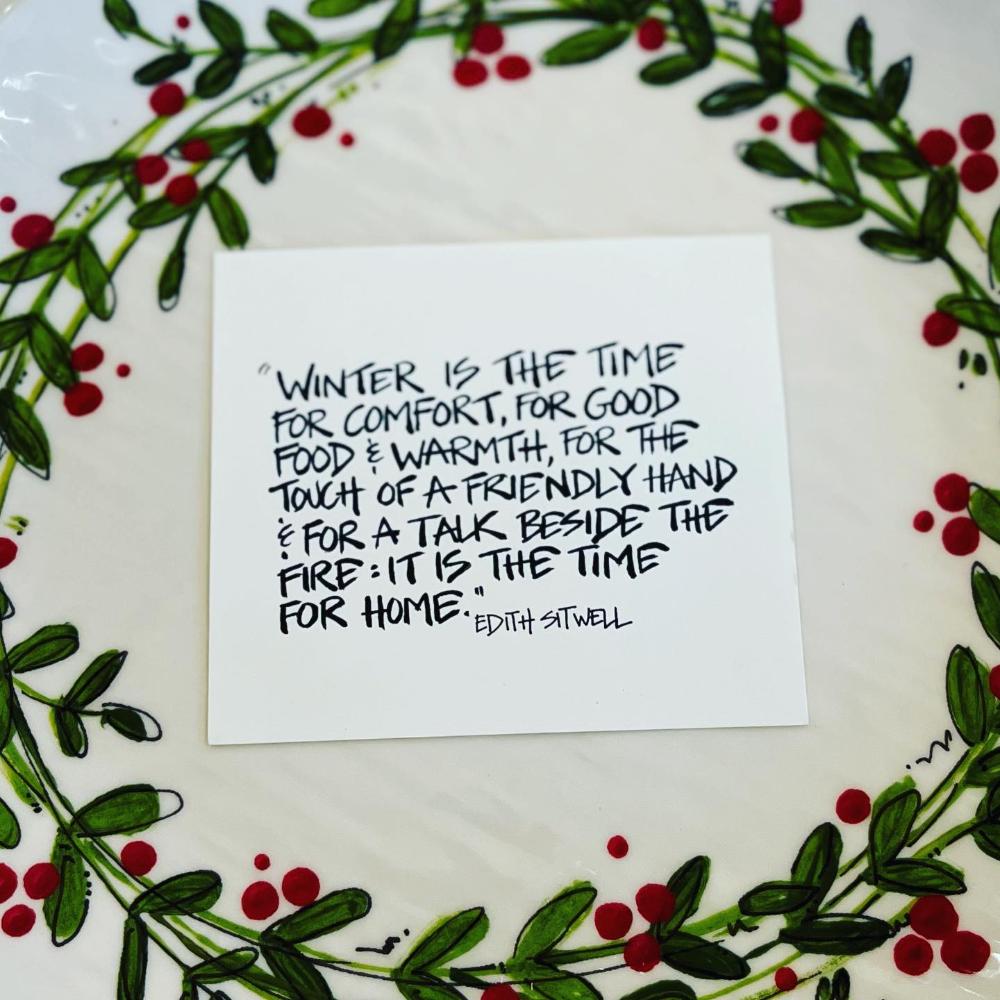 "WINTER IS THE TIME
FOR COMFORT, FOR GOOD
FOOD & WARMTH, FOR THE
TOUCH OF A FRIENDLY HAND
& FOR A TALK BESIDE THE
FIRE: IT IS THE TIME
FOR HOME."
EDITH SITWELL